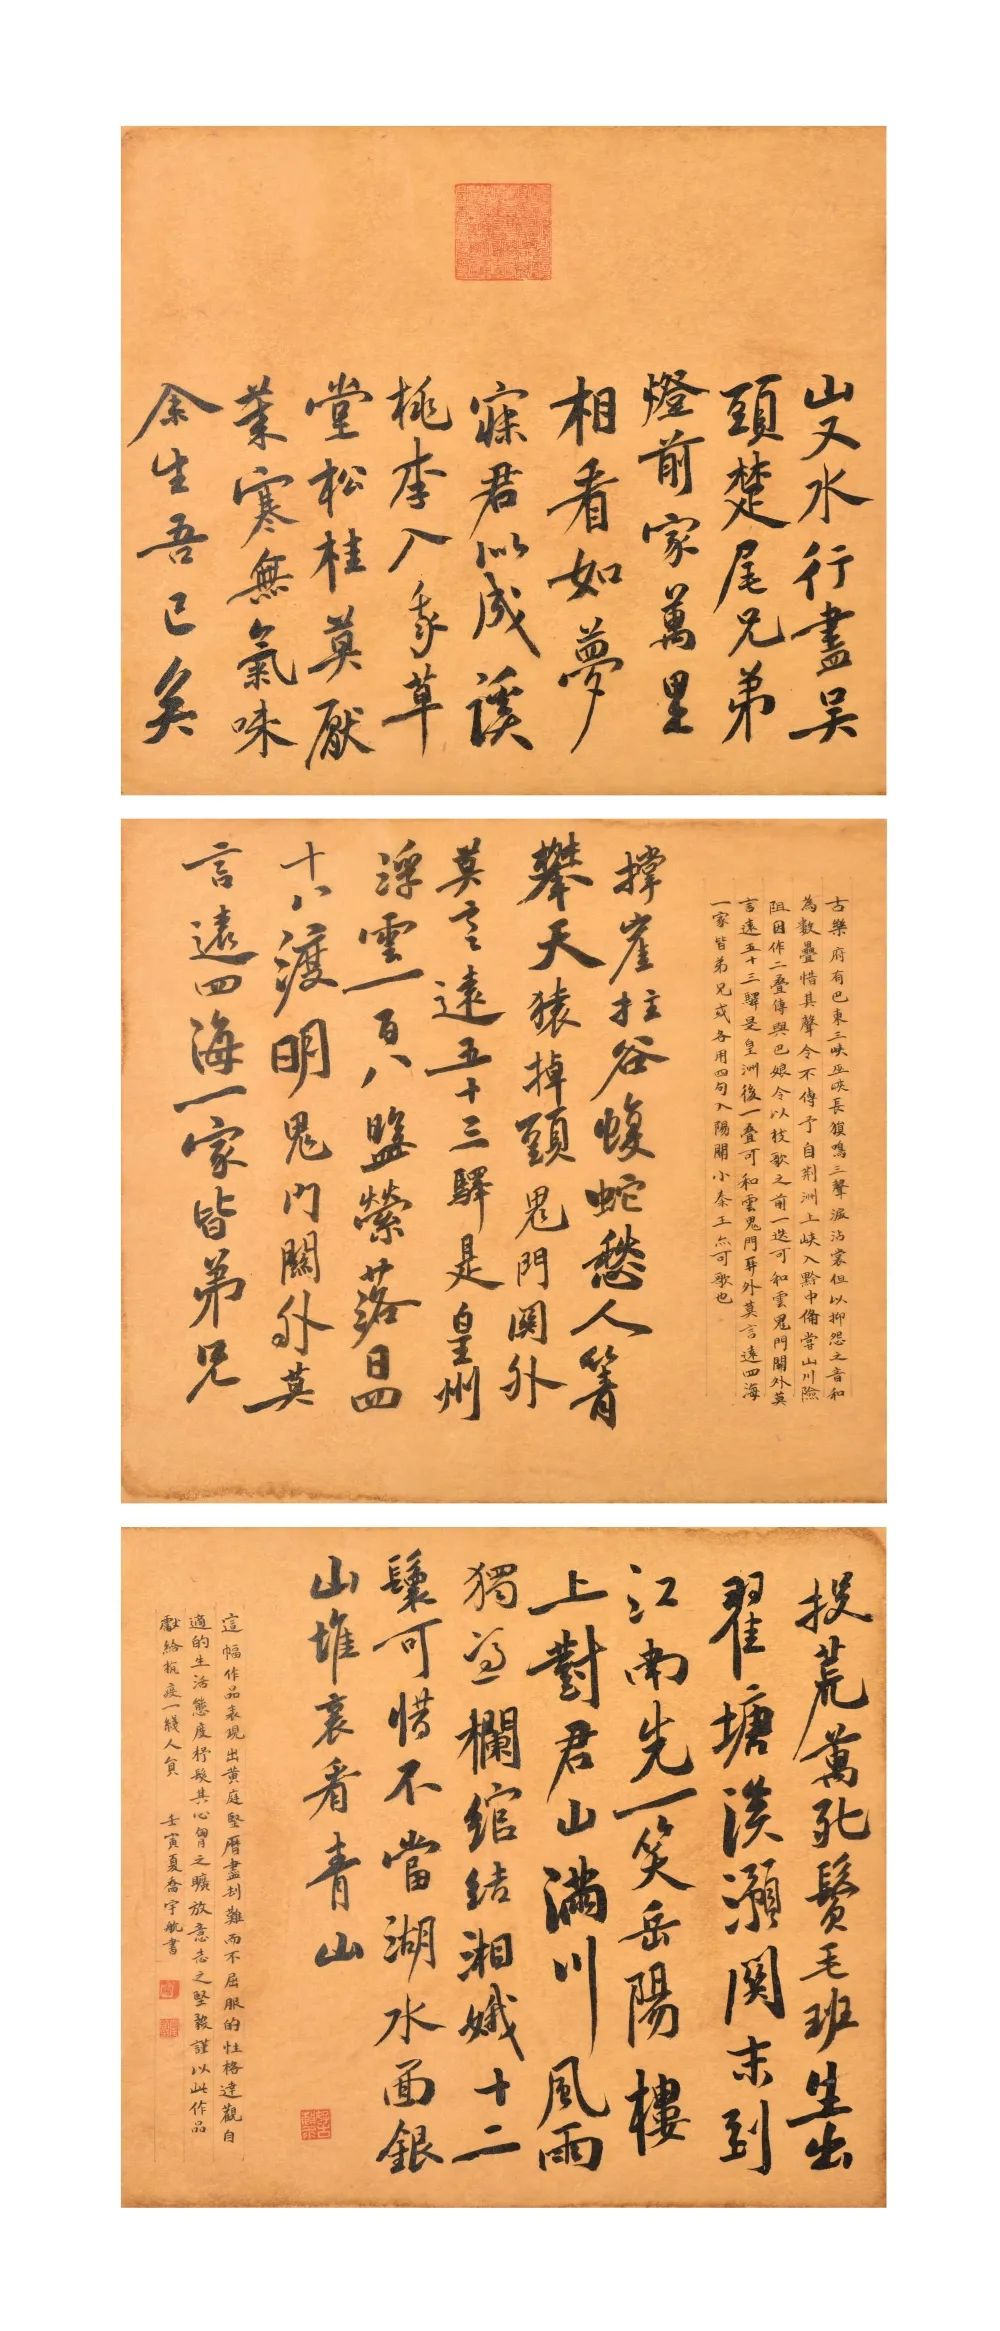 山又水行盡吴
頭楚尾兄弟
燈前家萬里
相看如夢
寐君似成蹊
桃李入我草
堂松桂莫厭
葉寒無氣味
余生吾已矣
古樂府有巴東三峽巫峽長猨鳴三聲淚沾裳但以抑怨之音和
為數疊惜其聲今不傳予自荆洲上峽入黔中備嘗山川險
阻因作二疊傳與巴娘令以枝歌之前一迭可和雲鬼門關外莫
言遠五十三驛是皇洲後一疊可和雲鬼門關外莫言遠四海
一家皆弟兄或各用四句入陽關小秦王亦可歌也
撑崖拄谷蝮蛇愁人箐
攀天猿掉頭鬼門関外
莫言遠五十三驛是皇州
浮雲一百八盤縈落日四
十八渡明鬼門關外莫
言遠四海一家皆弟兄
投荒萬死鬢毛班生出
瞿塘滟灝関未到
江南先一笑岳陽樓
上對君山滿川風雨
獨憑欄綰結湘娥十二
鬟可惜不當湖水面銀
山堆裏看青山
這幅作品表現出黄庭堅曆盡刮難而不屈服的性格達觀自
適的生活態度抒髮其心胷之曠放意志之堅毅謹以此作品
獻給抗疫一綫人員 壬寅夏喬宇航書